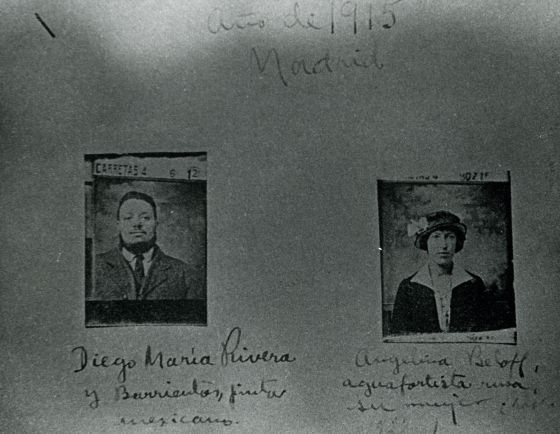 Año de 1915
Madrid
CARRETAS 4 6 12
Diego María Rivera
y Barrientos, pintor
mexicano.
Angelina Beloff,
aguafortista rusa,
su mujer